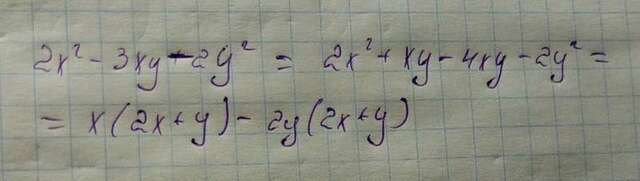 2x² - 3xy - 2y² = 2x² + xy - 4xy - 2y² =
= x(2x+y) - 2y(2x+y)